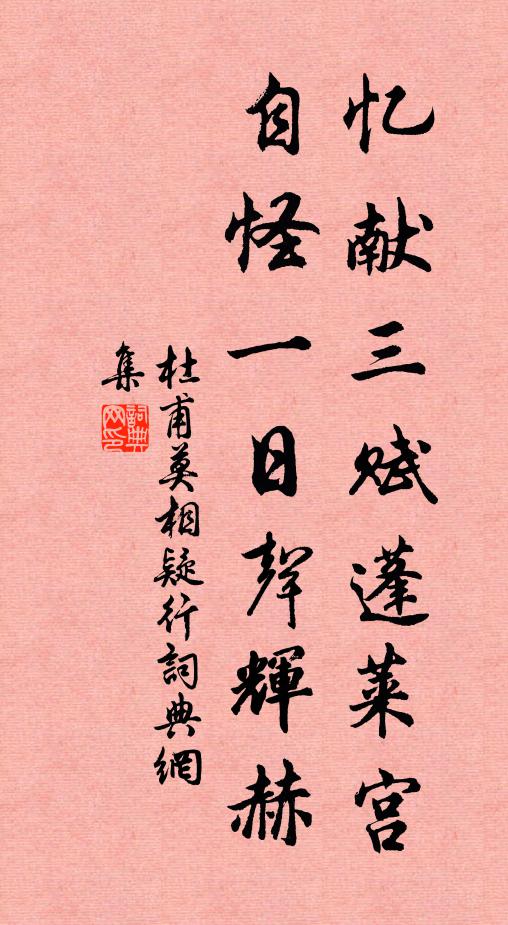 忆献三赋蓬莱宫
自怪一日声輝赫
杜甫莫相疑行詞典網
集
詞典
网印